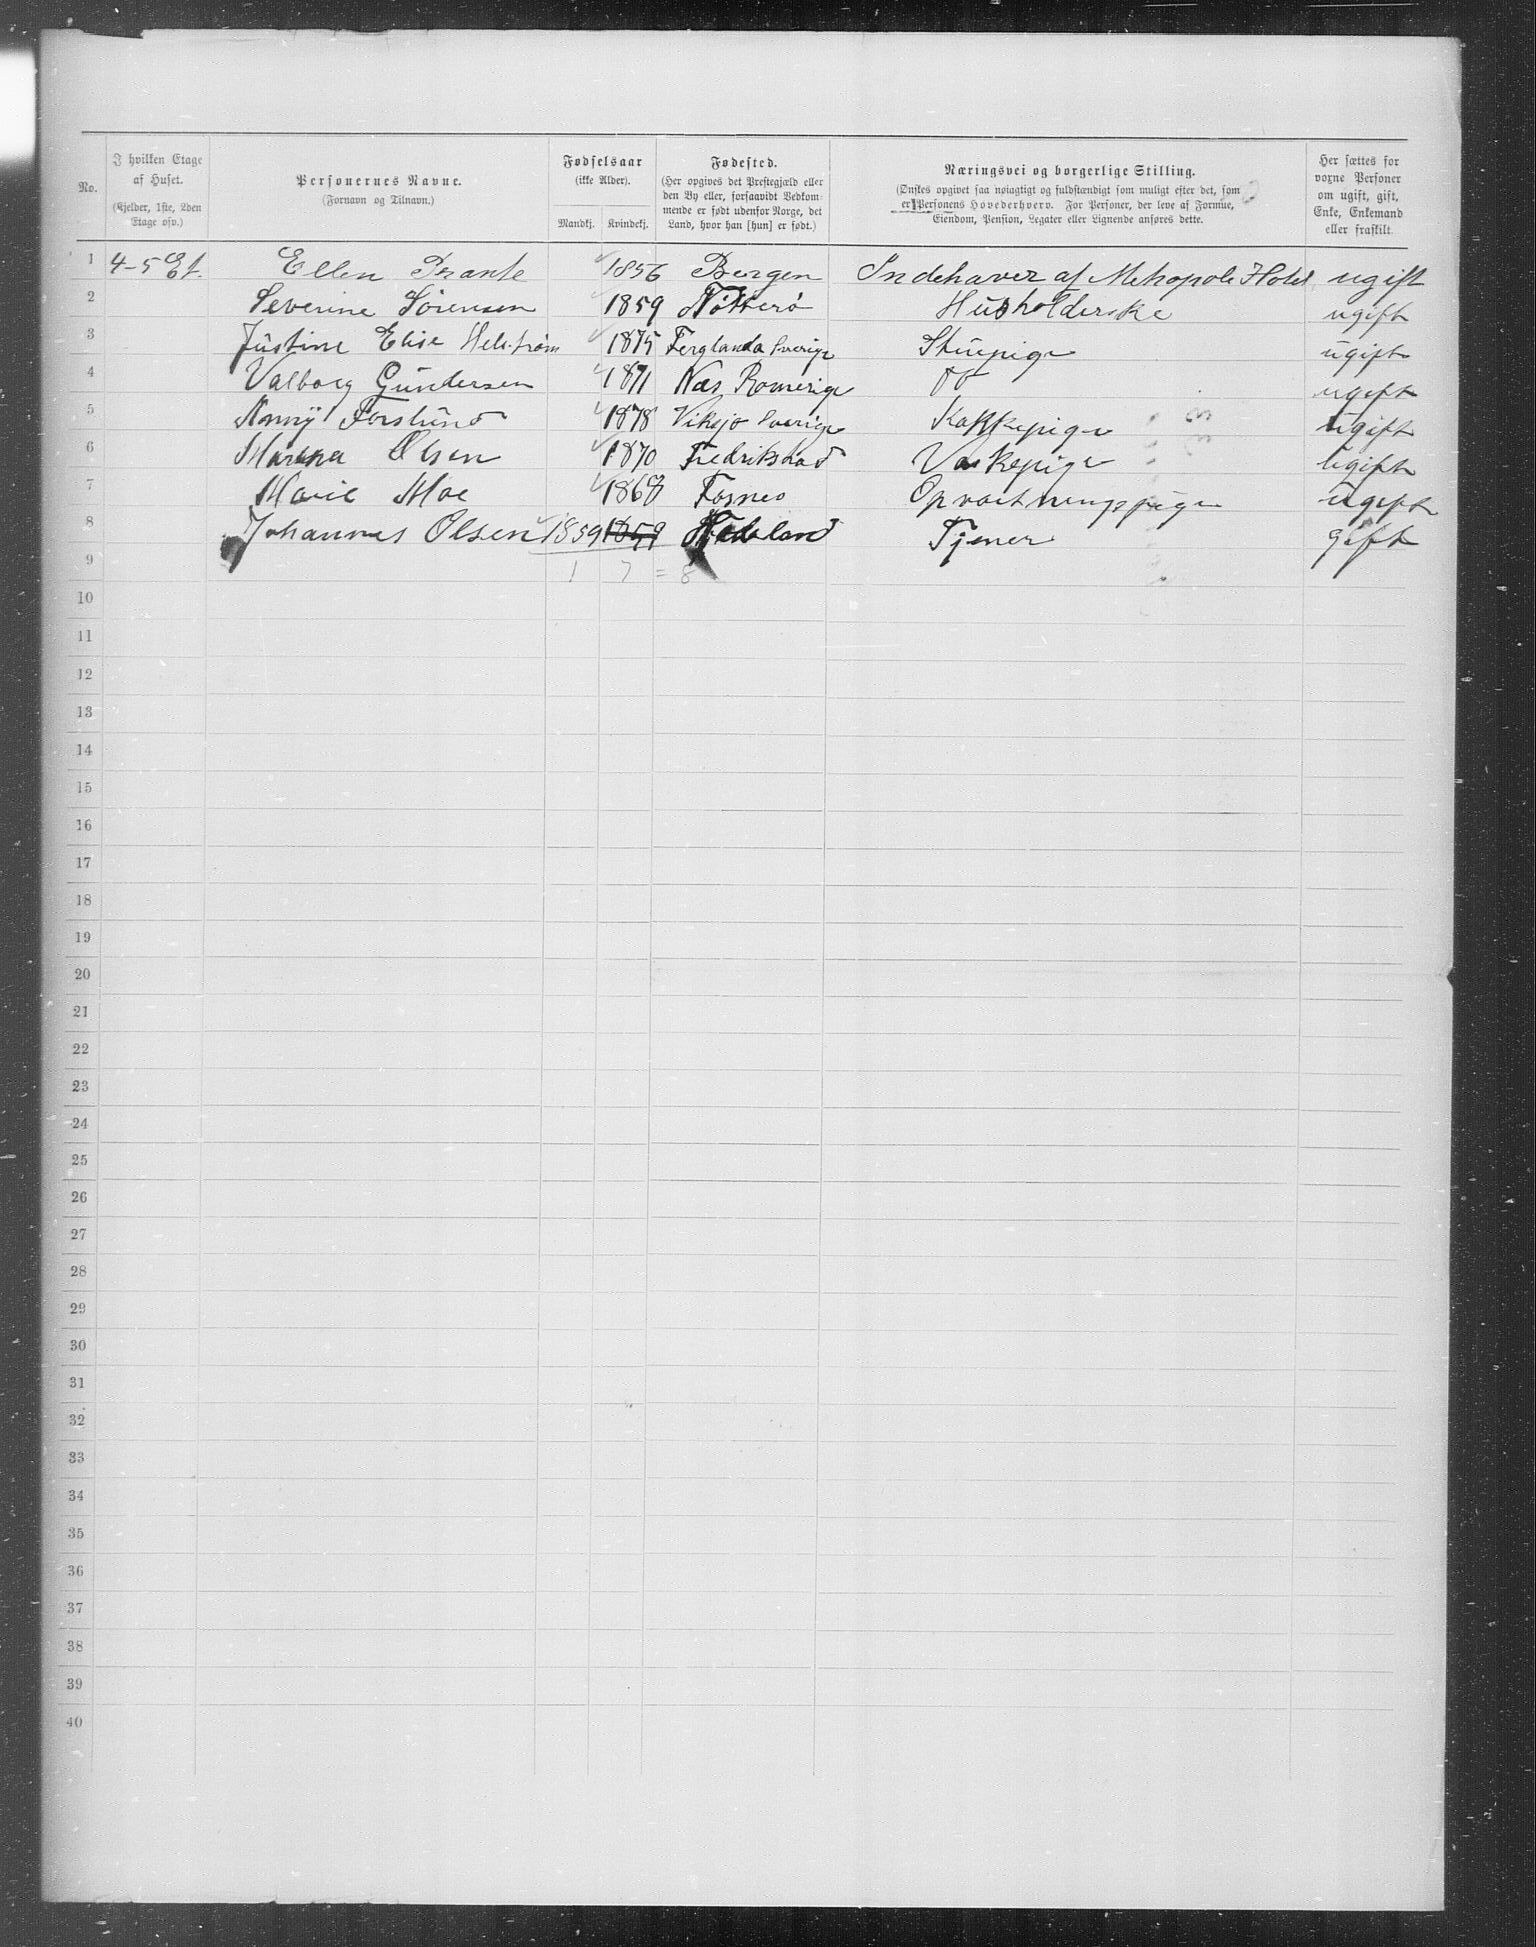 No.
I hvilken Etage af Huset. (Kjelder, 1ste, 2den Etage osv.)
Personernes Navne. (Fornavn og Tilnavn.)
Fødselsaar (ikke Alder). Mandkj. Kvindekj.
Fødested. (Her opgives det Prestegjæld eller den By eller, forsaavidt Vedkommende er født udenfor Norge, det Land, hvor han [hun] er født.)
Næringsvei og borgerlige Stilling. (Ønskes opgivet saa nøiagtigt og fuldstændigt som muligt efter det, som er Personens Hovederhverv. For Personer, der leve af Formue, Eiendom, Pension, Legater eller Lignende anføres dette.
Her sættes for voxne Personer om ugift, gift, Enke, Enkemand eller fraskilt.
1 4-5 Et. Ellen 1856 Bergen Indehaver af Metropole Hotel ugift
2 Severine Sörensen 1859 Nötterö Husholderske ugift
3 Justine Elise Helström 1875 Ferglanda Sverige Stuepige ugift
4 Valborg Gundersen 1871 Næs Romerige do ugift
5 Forslund 1878 Viksjo Sverige Kokkepige ugift
6 Olsen 1870 Fredrikstad Vaskepige ugift
7 Marie Moe 1868 Fosnes Opvartningspige ugift
8 Johannes Olsen 1859 1859 Hadeland Tjener gift
9 1 7 = 8
10
11
12
13
14
15
16
17
18
19
20
21
22
23
24
25
26
27
28
29
30
31
32
33
34
35
36
37
38
39
40